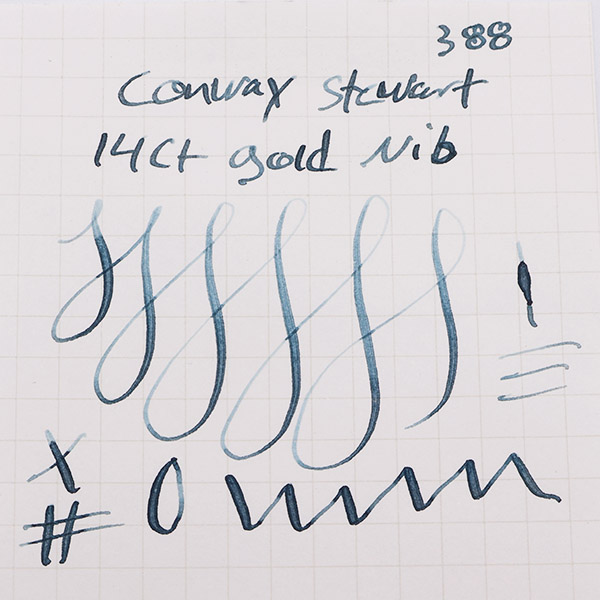 388
Conway Stewart
14Ct gold Nib
X
# 0